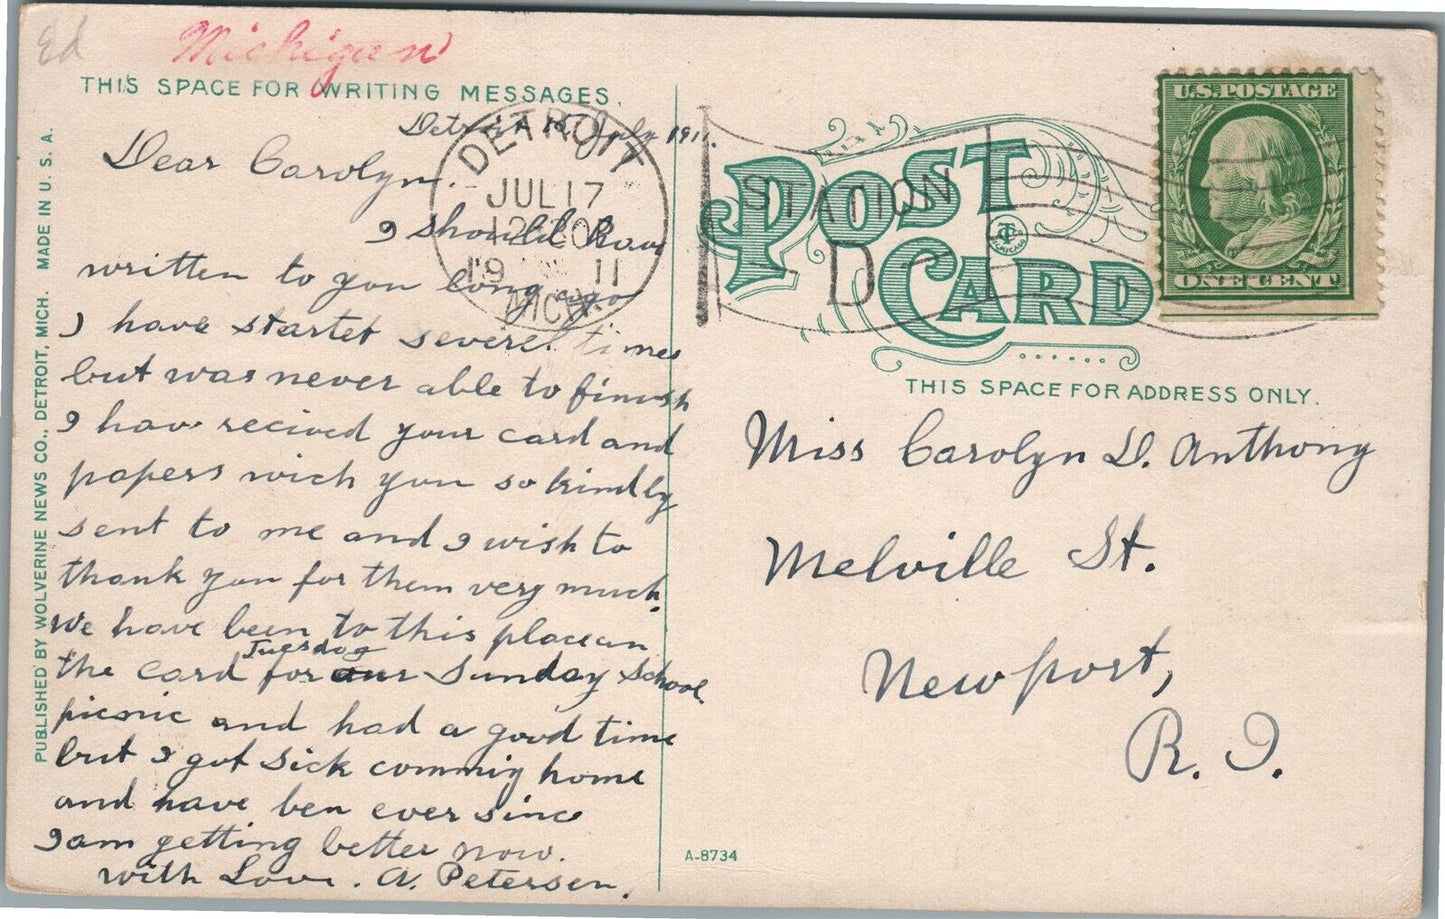 Ed
Michigan
THIS SPACE FOR WRITING MESSAGES.
Detroit July 1911.
Dear Carolyn.
I should have
written to you long ago
I have startet severel times
but was never able to finish
I have recived your card and
papers wich you so kindly
sent to me and I wish to
thank you for them very much.
We have been to this place on
Tuesday
the card for our Sunday School
picnic and had a good time
but I got sick comming home
and have ben ever since
I am getting better now.
with Love. A. Petersen.
PUBLISHED BY WOLVERINE NEWS CO., DETROIT, MICH. MADE IN U. S. A.
DETROIT
JUL 17
12 30 P
19 11
MICH.
STATION
D
POST
CARD
CT
CHICAGO
U.S. POSTAGE
ONE CENT
THIS SPACE FOR ADDRESS ONLY.
Miss Carolyn D. Anthony
Melville St.
Newport,
R. I.
A-8734